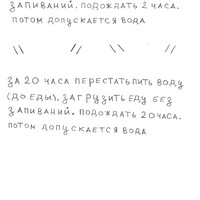 ЗАПИВАНИЙ. ПОДОЖДАТЬ 2 ЧАСА.
ПОТОМ ДОПУСКАЕТСЯ ВОДА
\\ // \\ //
ЗА 20 ЧАСА ПЕРЕСТАТЬ ПИТЬ ВОДУ
(ДО ЕДЫ). ЗАГРУЗИТЬ ЕДУ БЕЗ
ЗАПИВАНИЙ. ПОДОЖДАТЬ 20 ЧАСА.
ПОТОМ ДОПУСКАЕТСЯ ВОДА